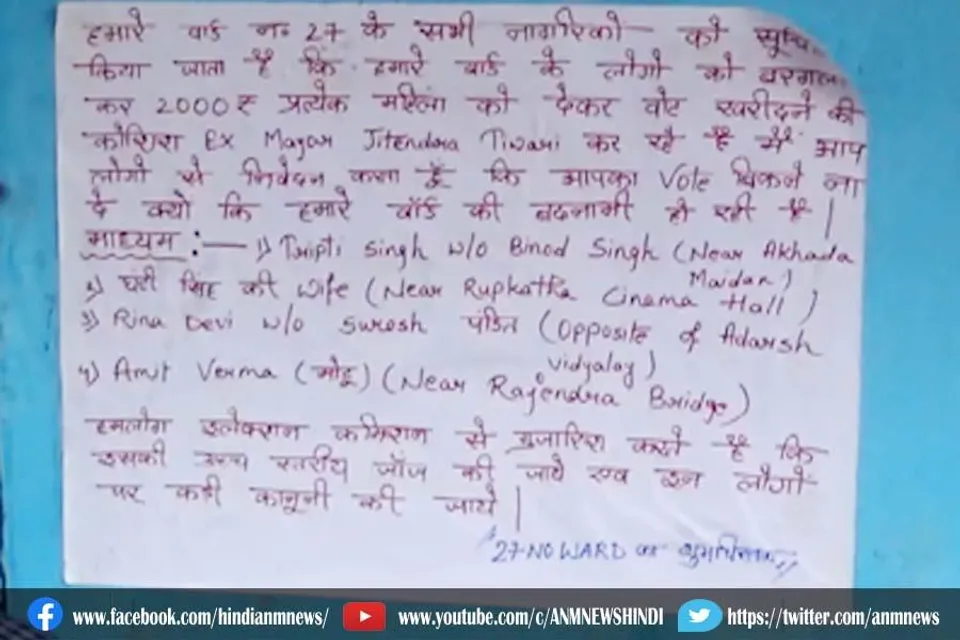 हमारे वार्ड न० 27 के सभी नागरिको को
किया जाता है कि हमारे वार्ड के लोगो को
कर 2000₹ प्रत्येक महिला को देकर वोट खरीदने की
कोशिश Ex Mayor Jitendra Tiwari कर रहे है मैं आप
लोगो से निवेदन करता हूँ कि आपका Vote बिकने ना
दे क्यो कि हमारे वॉर्ड की बदनामी हो रही है|
माध्यम :— 1) Tripti Singh w/o Binod Singh (Near Akhada Maidan)
2) घंटी सिंह की Wife (Near Rupkatha Cinema Hall)
3) Rina Devi w/o Suresh पंडित (Opposite of Adarsh Vidyalay)
4) Amit Verma (मोटू) (Near Rajendra Bridge)
हमलोग इलेक्शन कमिशन से गुजारिश करते है कि
इसकी उच्च स्तरीय जाँच की जाये एवं इन लोगों
पर कडी कानूनी की जाये|
27 NO WARD का शुभचिंतक
www.facebook.com/hindianmnews/ www.youtube.com/c/ANMNEWSHINDI https://twitter.com/anmnews